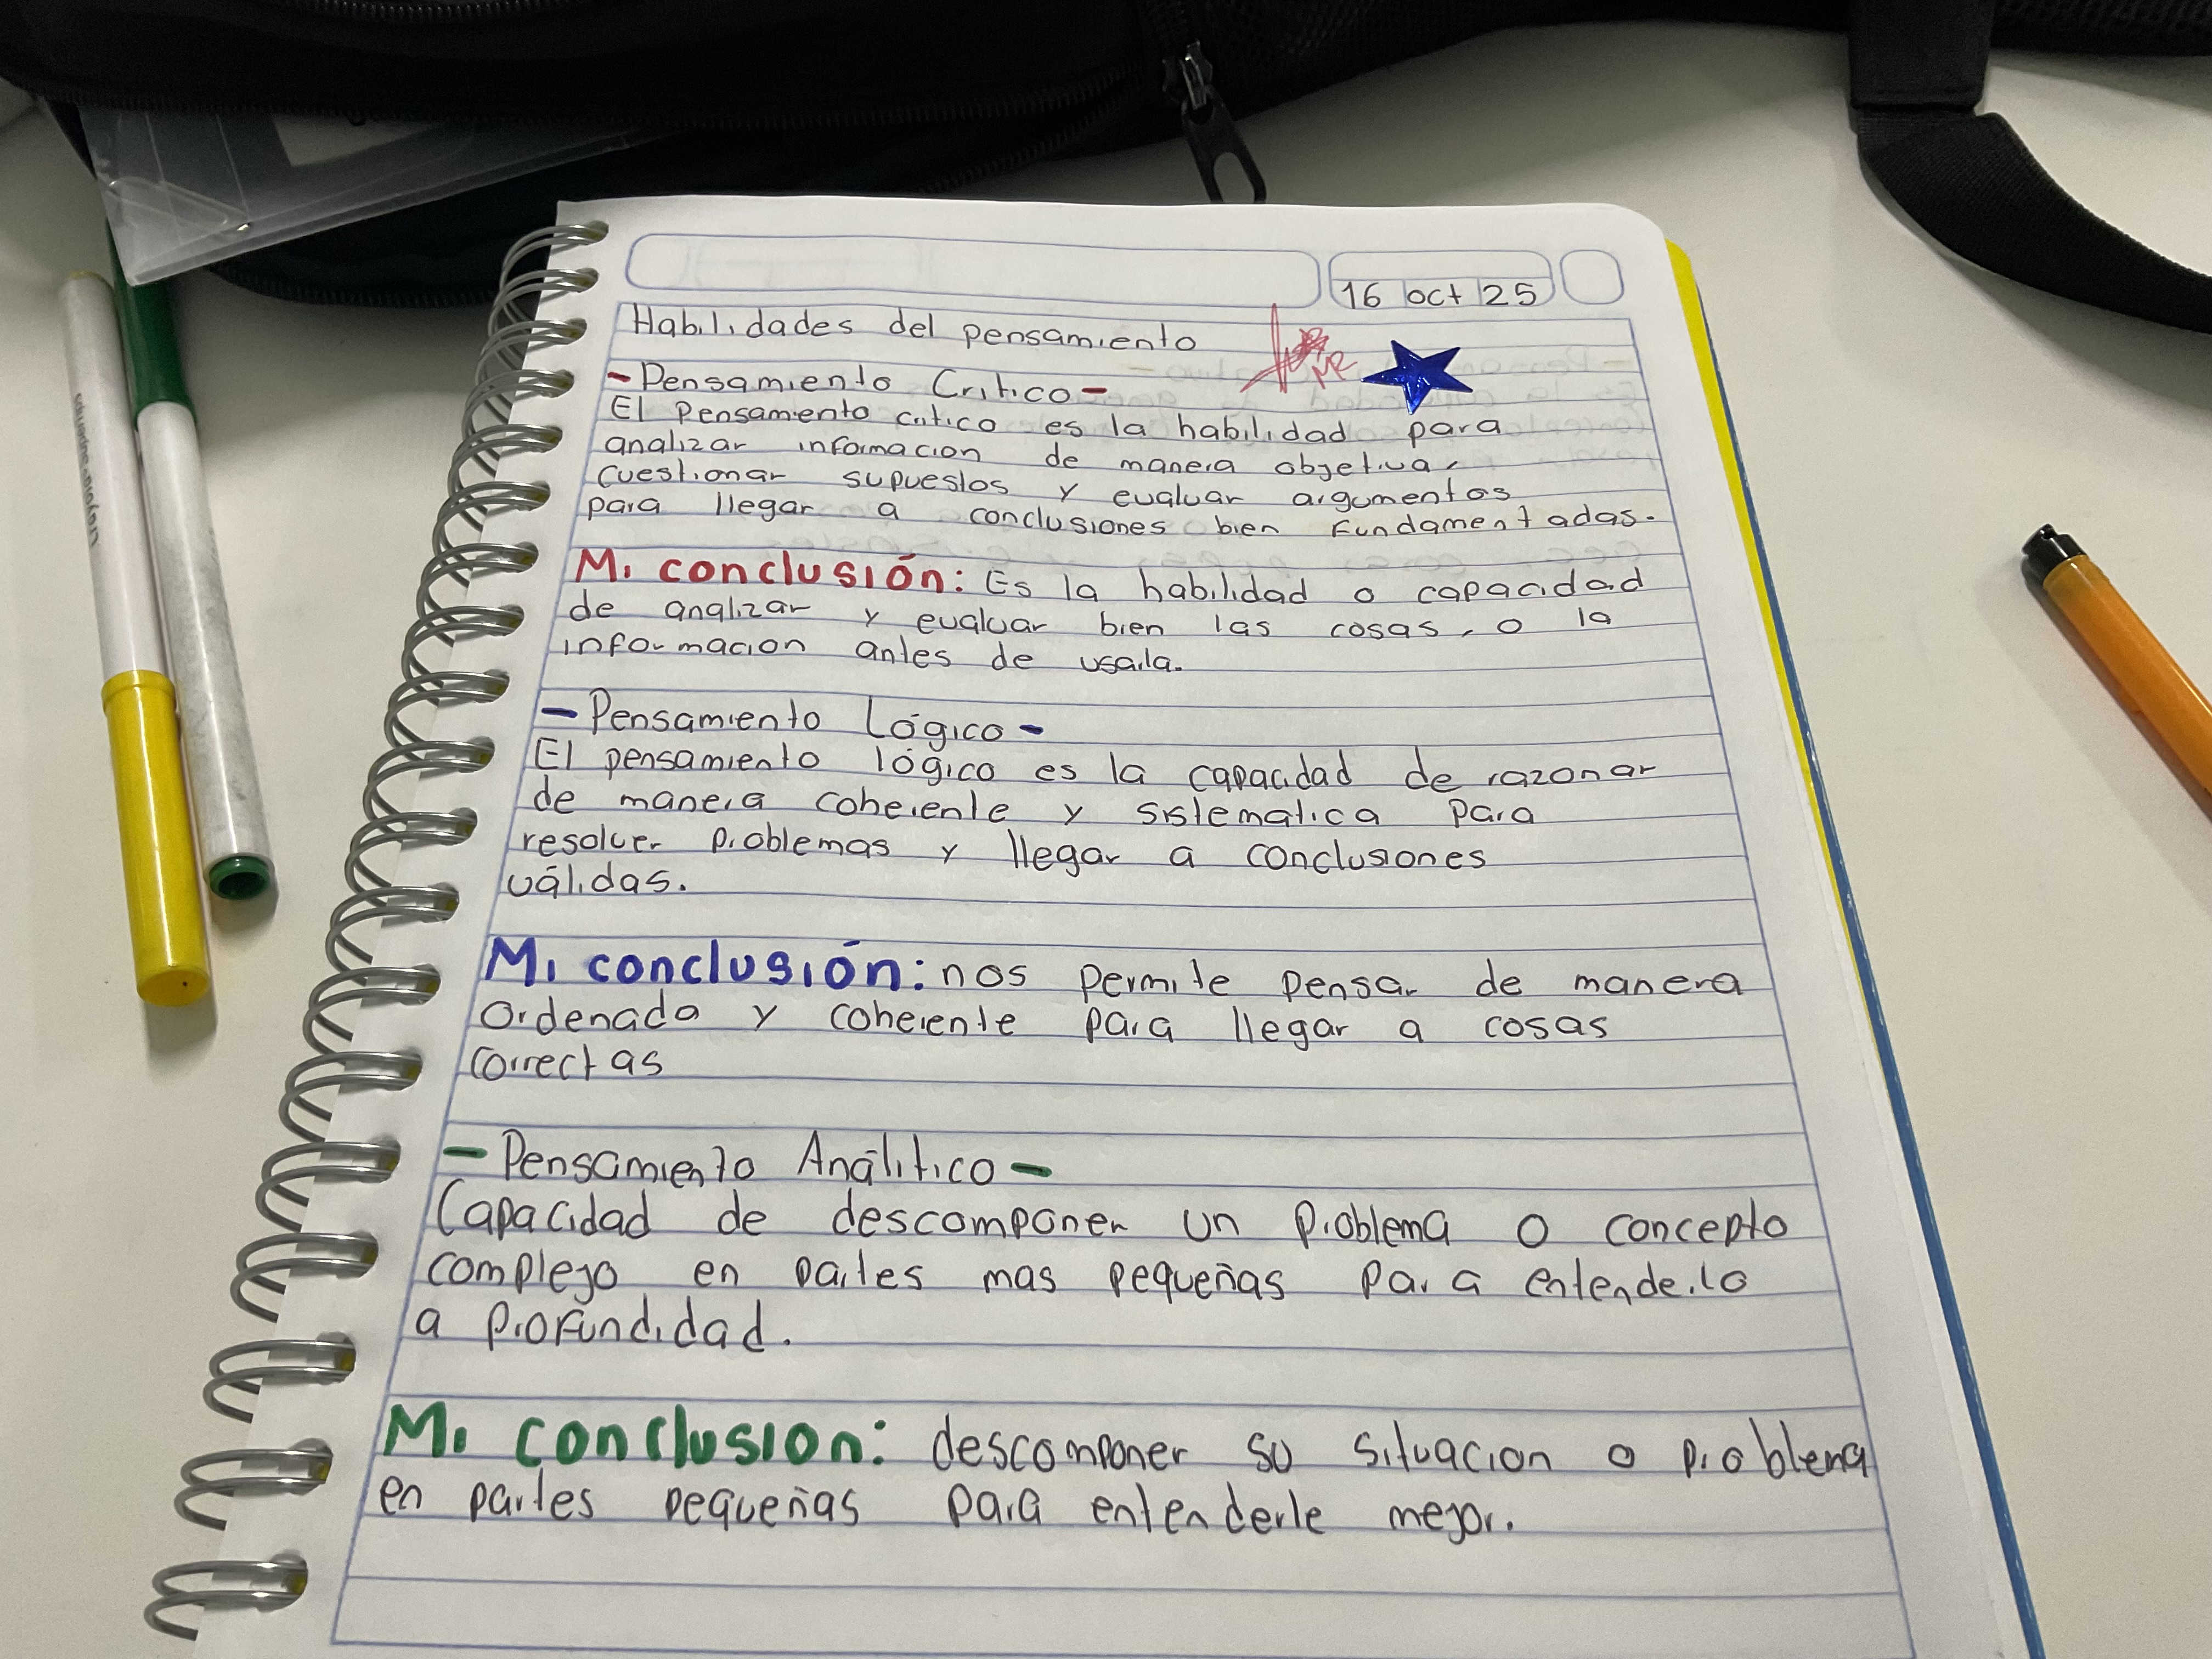 16 oct 25
Habilidades del pensamiento
- Pensamiento Critico -
El pensamiento critico es la habilidad para
analizar informacion de manera objetiva,
cuestionar supuestos y evaluar argumentos
para llegar a conclusiones bien fundamentadas.
Mi conclusión: Es la habilidad o capacidad
de analizar y evaluar bien las cosas, o la
informacion antes de usarla.
- Pensamiento Lógico -
El pensamiento lógico es la capacidad de razonar
de manera coherente y sistematica para
resolver problemas y llegar a conclusiones
válidas.
Mi conclusión: nos permite pensar de manera
ordenada y coherente para llegar a cosas
correctas
- Pensamiento Análitico -
Capacidad de descomponer un problema o concepto
complejo en partes mas pequeñas para entenderlo
a profundidad.
Mi conclusion: descomponer su situacion o problema
en partes pequeñas para enterderle mejor.